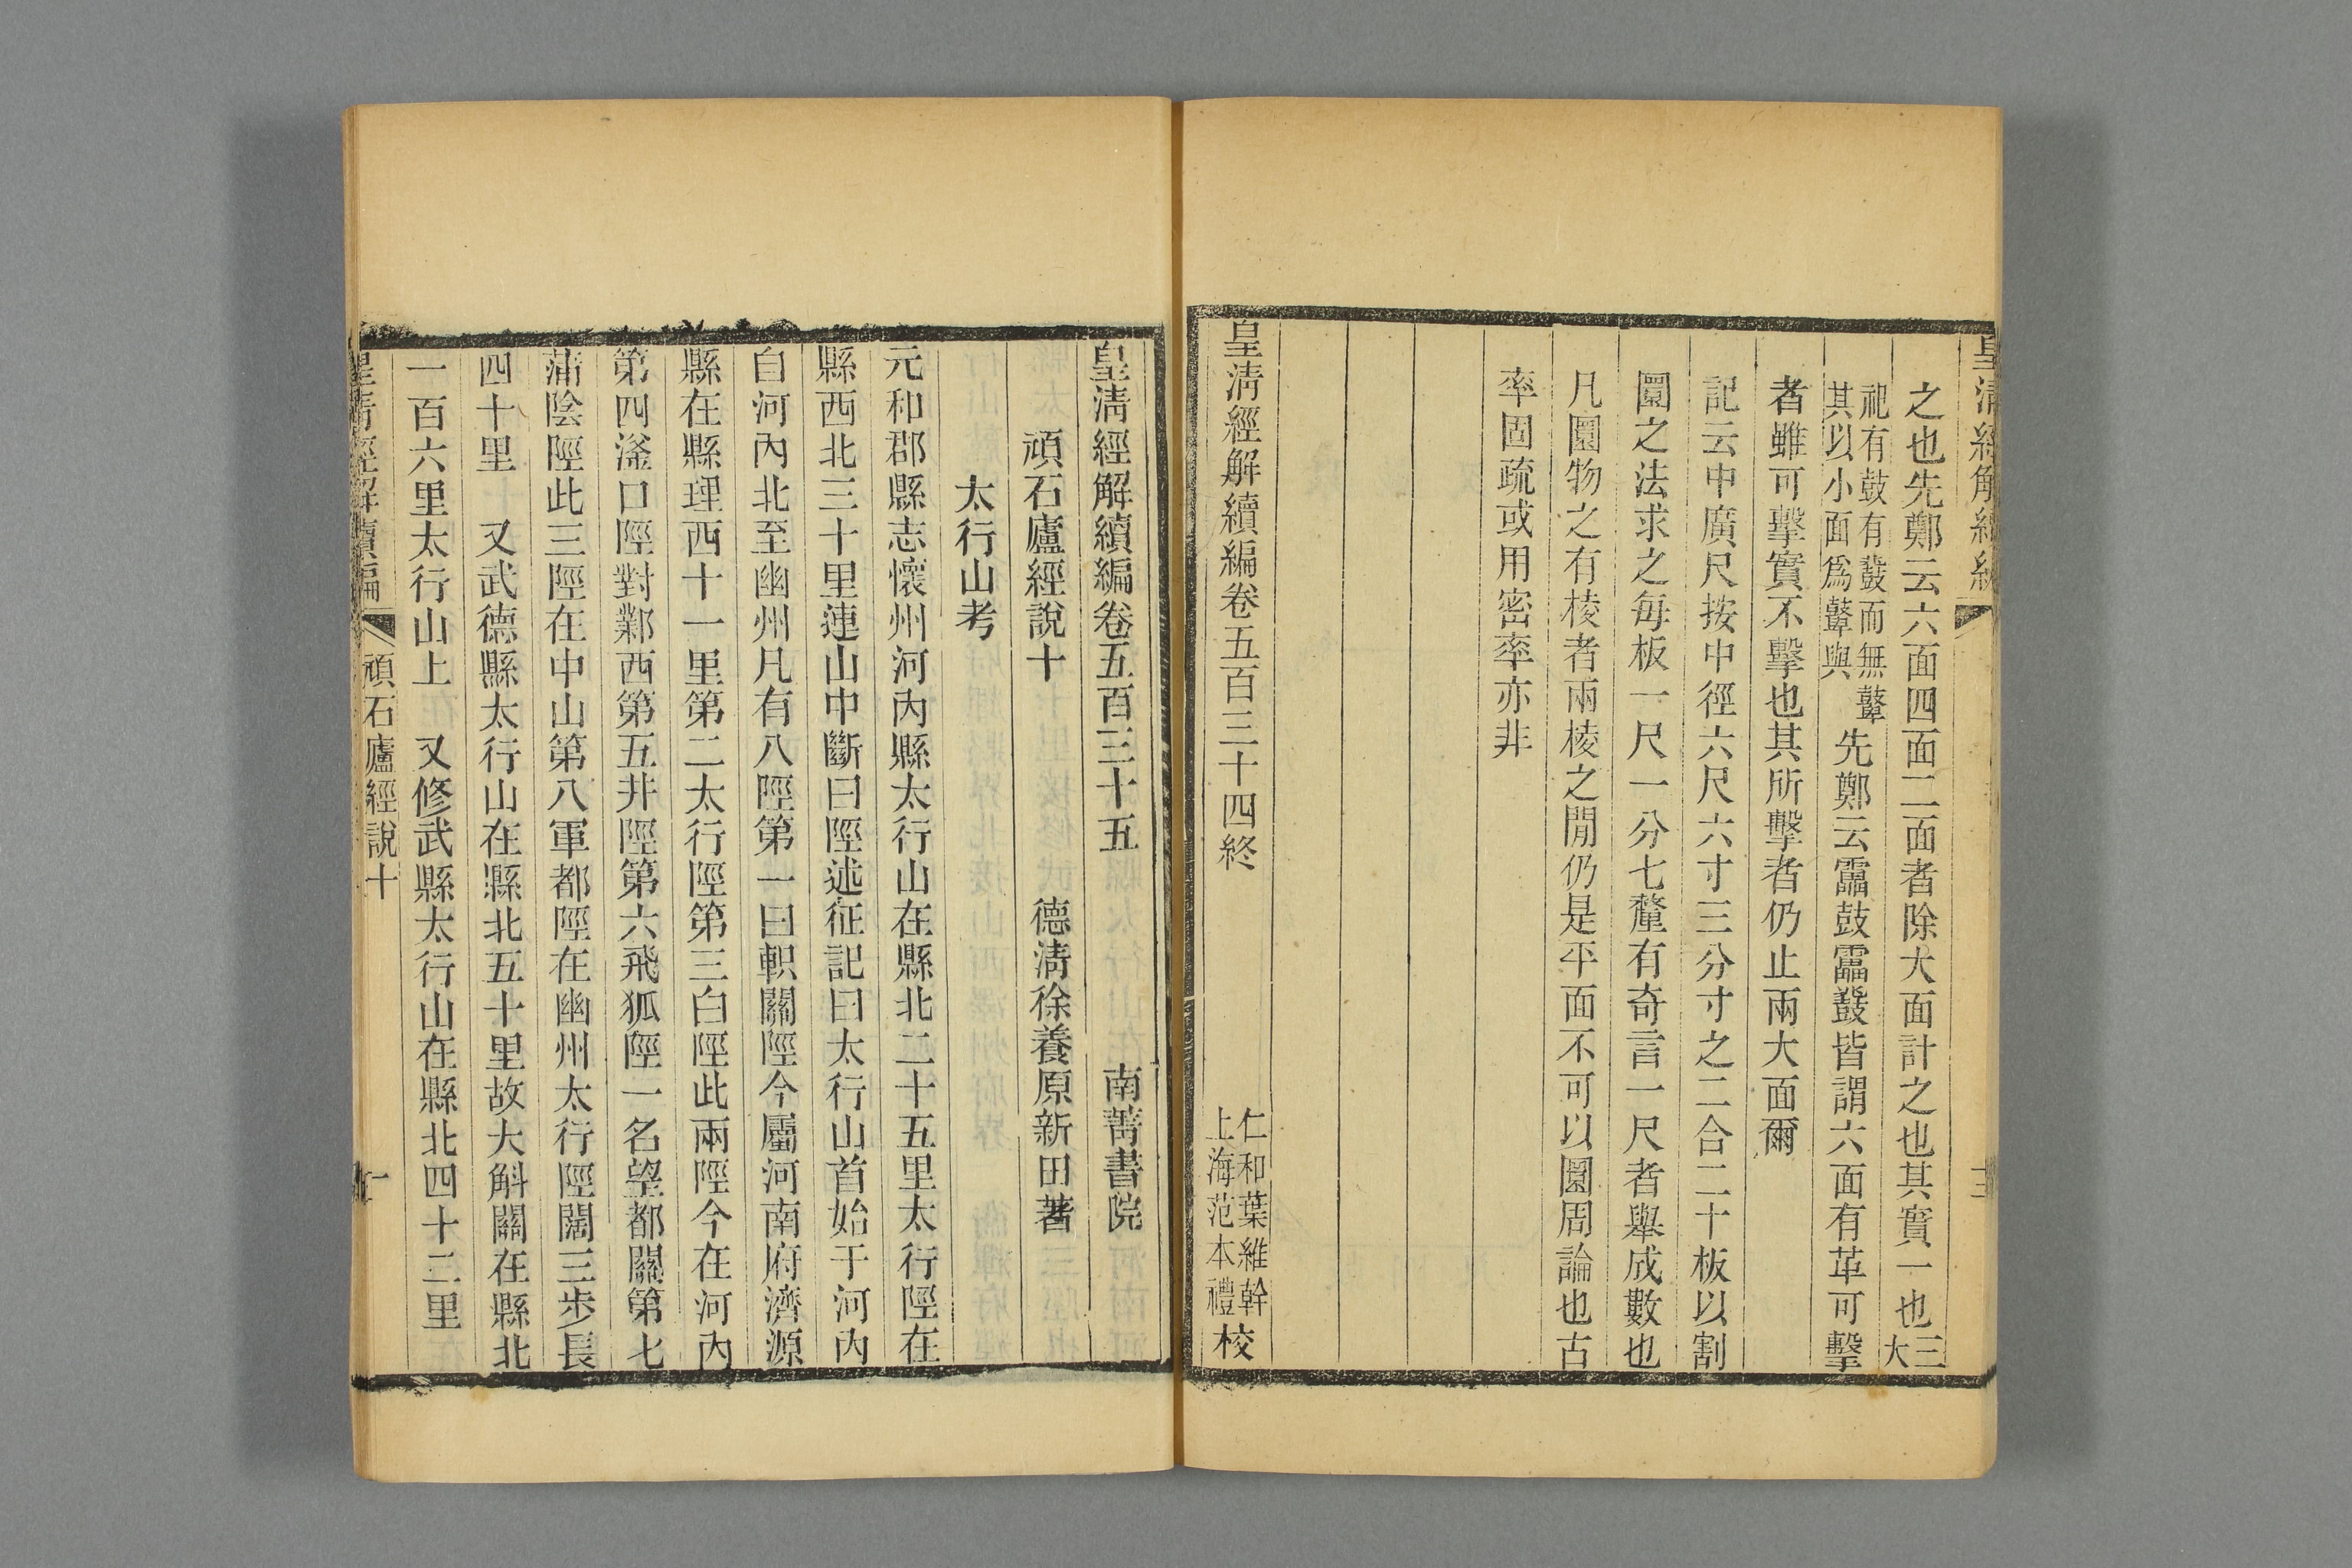 皇清經解續編
之也先鄭云六面四面二面者除大面計之也其實一也三大
祀有鼓有鼖而無鼛
其以小面爲鼛與
先鄭云靁鼓靁鼗皆謂六面有革可擊
者雖可擊實不擊也其所擊者仍止兩大面爾
記云中廣尺按中徑六尺六寸三分寸之二合二十板以割
圜之法求之每板一尺一分七釐有奇言一尺者舉成數也
凡圜物之有棱者兩棱之閒仍是平面不可以圜周論也古
率固疏或用密率亦非
皇清經解續編卷五百三十四終
仁和葉維幹
上海范本禮
校
皇清經解續編卷五百三十五 南菁書院
頑石廬經說十 德清徐養原新田著
太行山考
元和郡縣志懷州河內縣太行山在縣北二十五里太行陘在
縣西北三十里連山中斷曰陘述征記曰太行山首始于河內
自河內北至幽州凡有八陘第一曰軹關陘今屬河南府濟源
縣在縣理西十一里第二太行陘第三白陘此兩陘今在河內
第四滏口陘對鄴西第五井陘第六飛狐陘一名望都關第七
蒲陰陘此三陘在中山第八軍都陘在幽州太行陘闊三步長
四十里 又武德縣太行山在縣北五十里故大斛關在縣北
一百六里太行山上 又修武縣太行山在縣北四十二里
皇清經解續編 頑石廬經說十 一